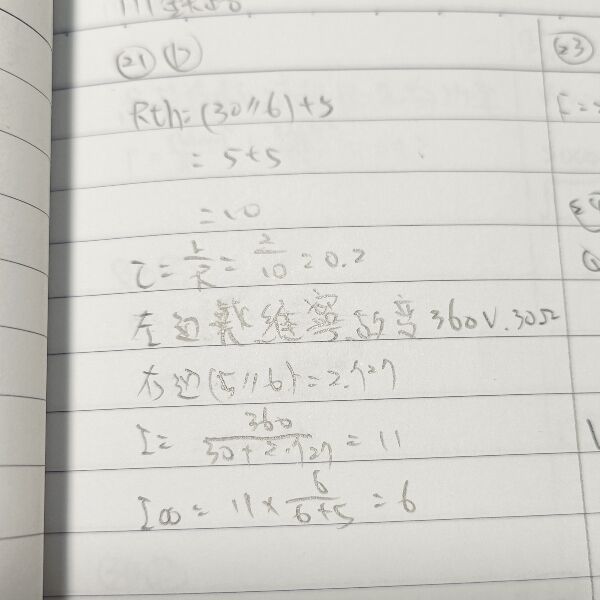 (21) (1)
Rth=(30//6)+5
= 5+5
=10
τ= L/R = 2/10 = 0.2
左邊戴維寧訪變360V.30Ω
右边(5//6)=2.727
I= 360/(30+2.727) = 11
I∞= 11× 6/(6+5) = 6
(23)